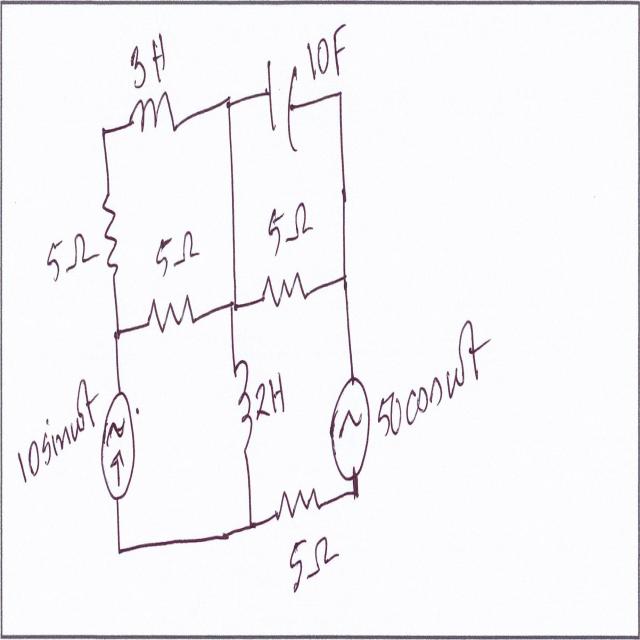 3H
10F
5Ω
5Ω
5Ω
10sinωt
2H
50cosωt
5Ω